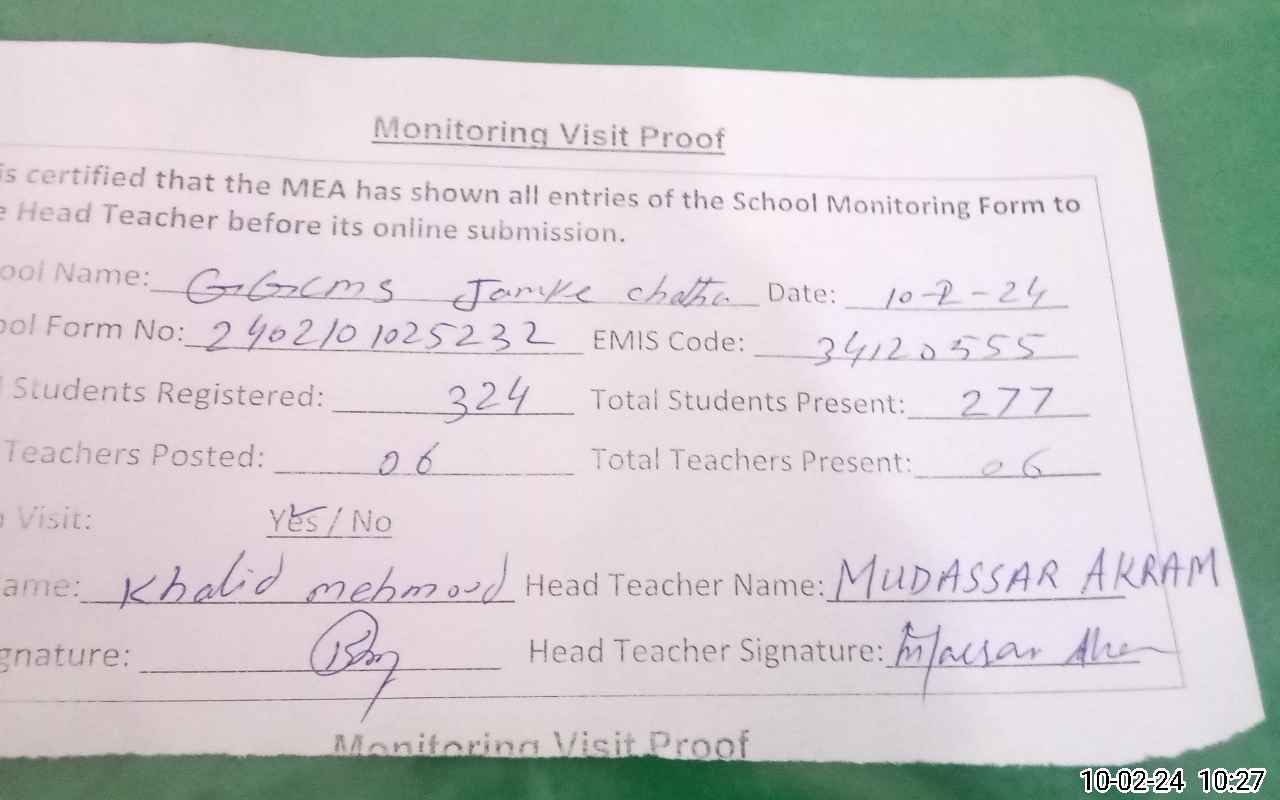 Monitoring Visit Proof
is certified that the MEA has shown all entries of the School Monitoring Form to
e Head Teacher before its online submission.
ool Name: GGCMS Jamke chatha Date: 10-2-24
ool Form No: 2402101025232 EMIS Code: 34120555
Students Registered: 324 Total Students Present: 277
Teachers Posted: 06 Total Teachers Present: 06
Visit: Yes / No
ame: Khalid mehmood Head Teacher Name: MUDASSAR AKRAM
gnature: Head Teacher Signature:
Monitoring Visit Proof
10-02-24 10:27